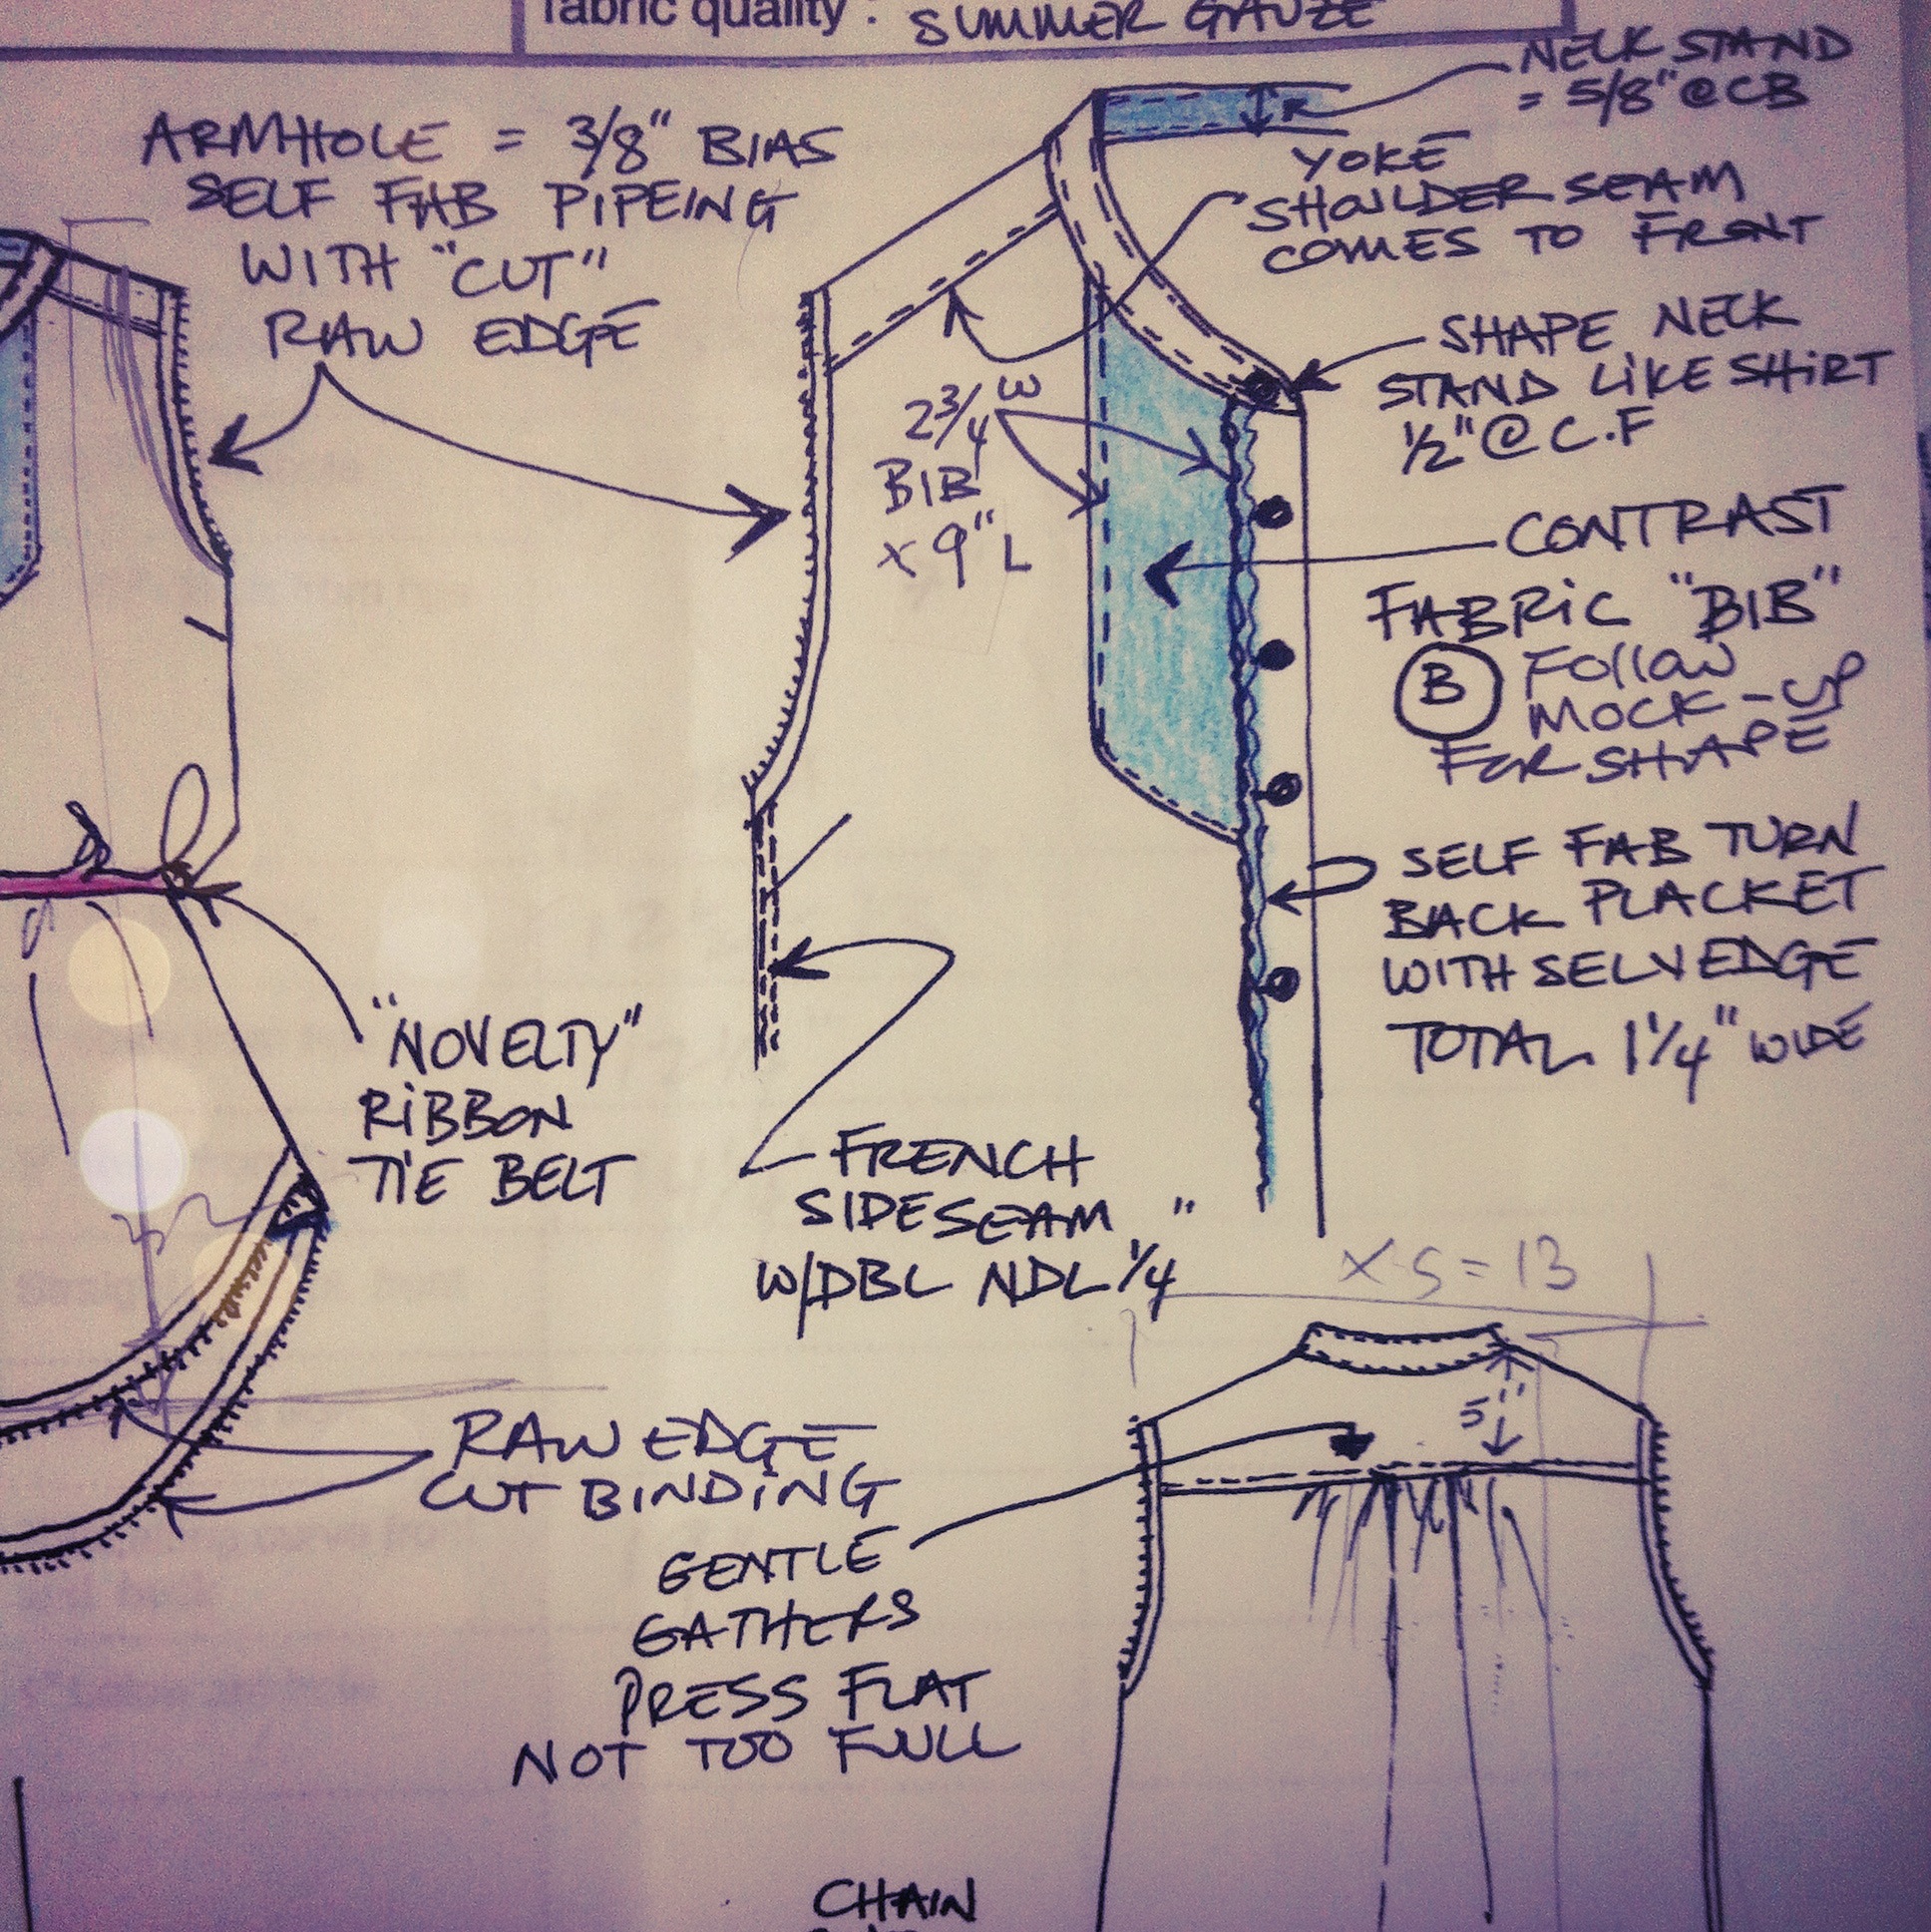 fabric quality : SUMMER GAUZE
NECK STAND
= 5/8" @ CB
ARMHOLE = 3/8" BIAS
SELF FAB PIPEING
WITH "CUT"
RAW EDGE
YOKE
SHOULDER SEAM
COMES TO FRONT
SHAPE NECK
STAND LIKE SHIRT
1/2" @ C.F
2 3/4 W
BIB
x 9" L
CONTRAST
FABRIC "BIB"
B FOLLOW
MOCK-UP
FOR SHAPE
SELF FAB TURN
BACK PLACKET
WITH SELVEDGE
TOTAL 1 1/4" WIDE
"NOVELTY"
RIBBON
TIE BELT
FRENCH
SIDESEAM
W/DBL NDL 1/4"
XS = 13
5"
RAW EDGE
CUT BINDING
GENTLE
GATHERS
PRESS FLAT
NOT TOO FULL
CHAIN